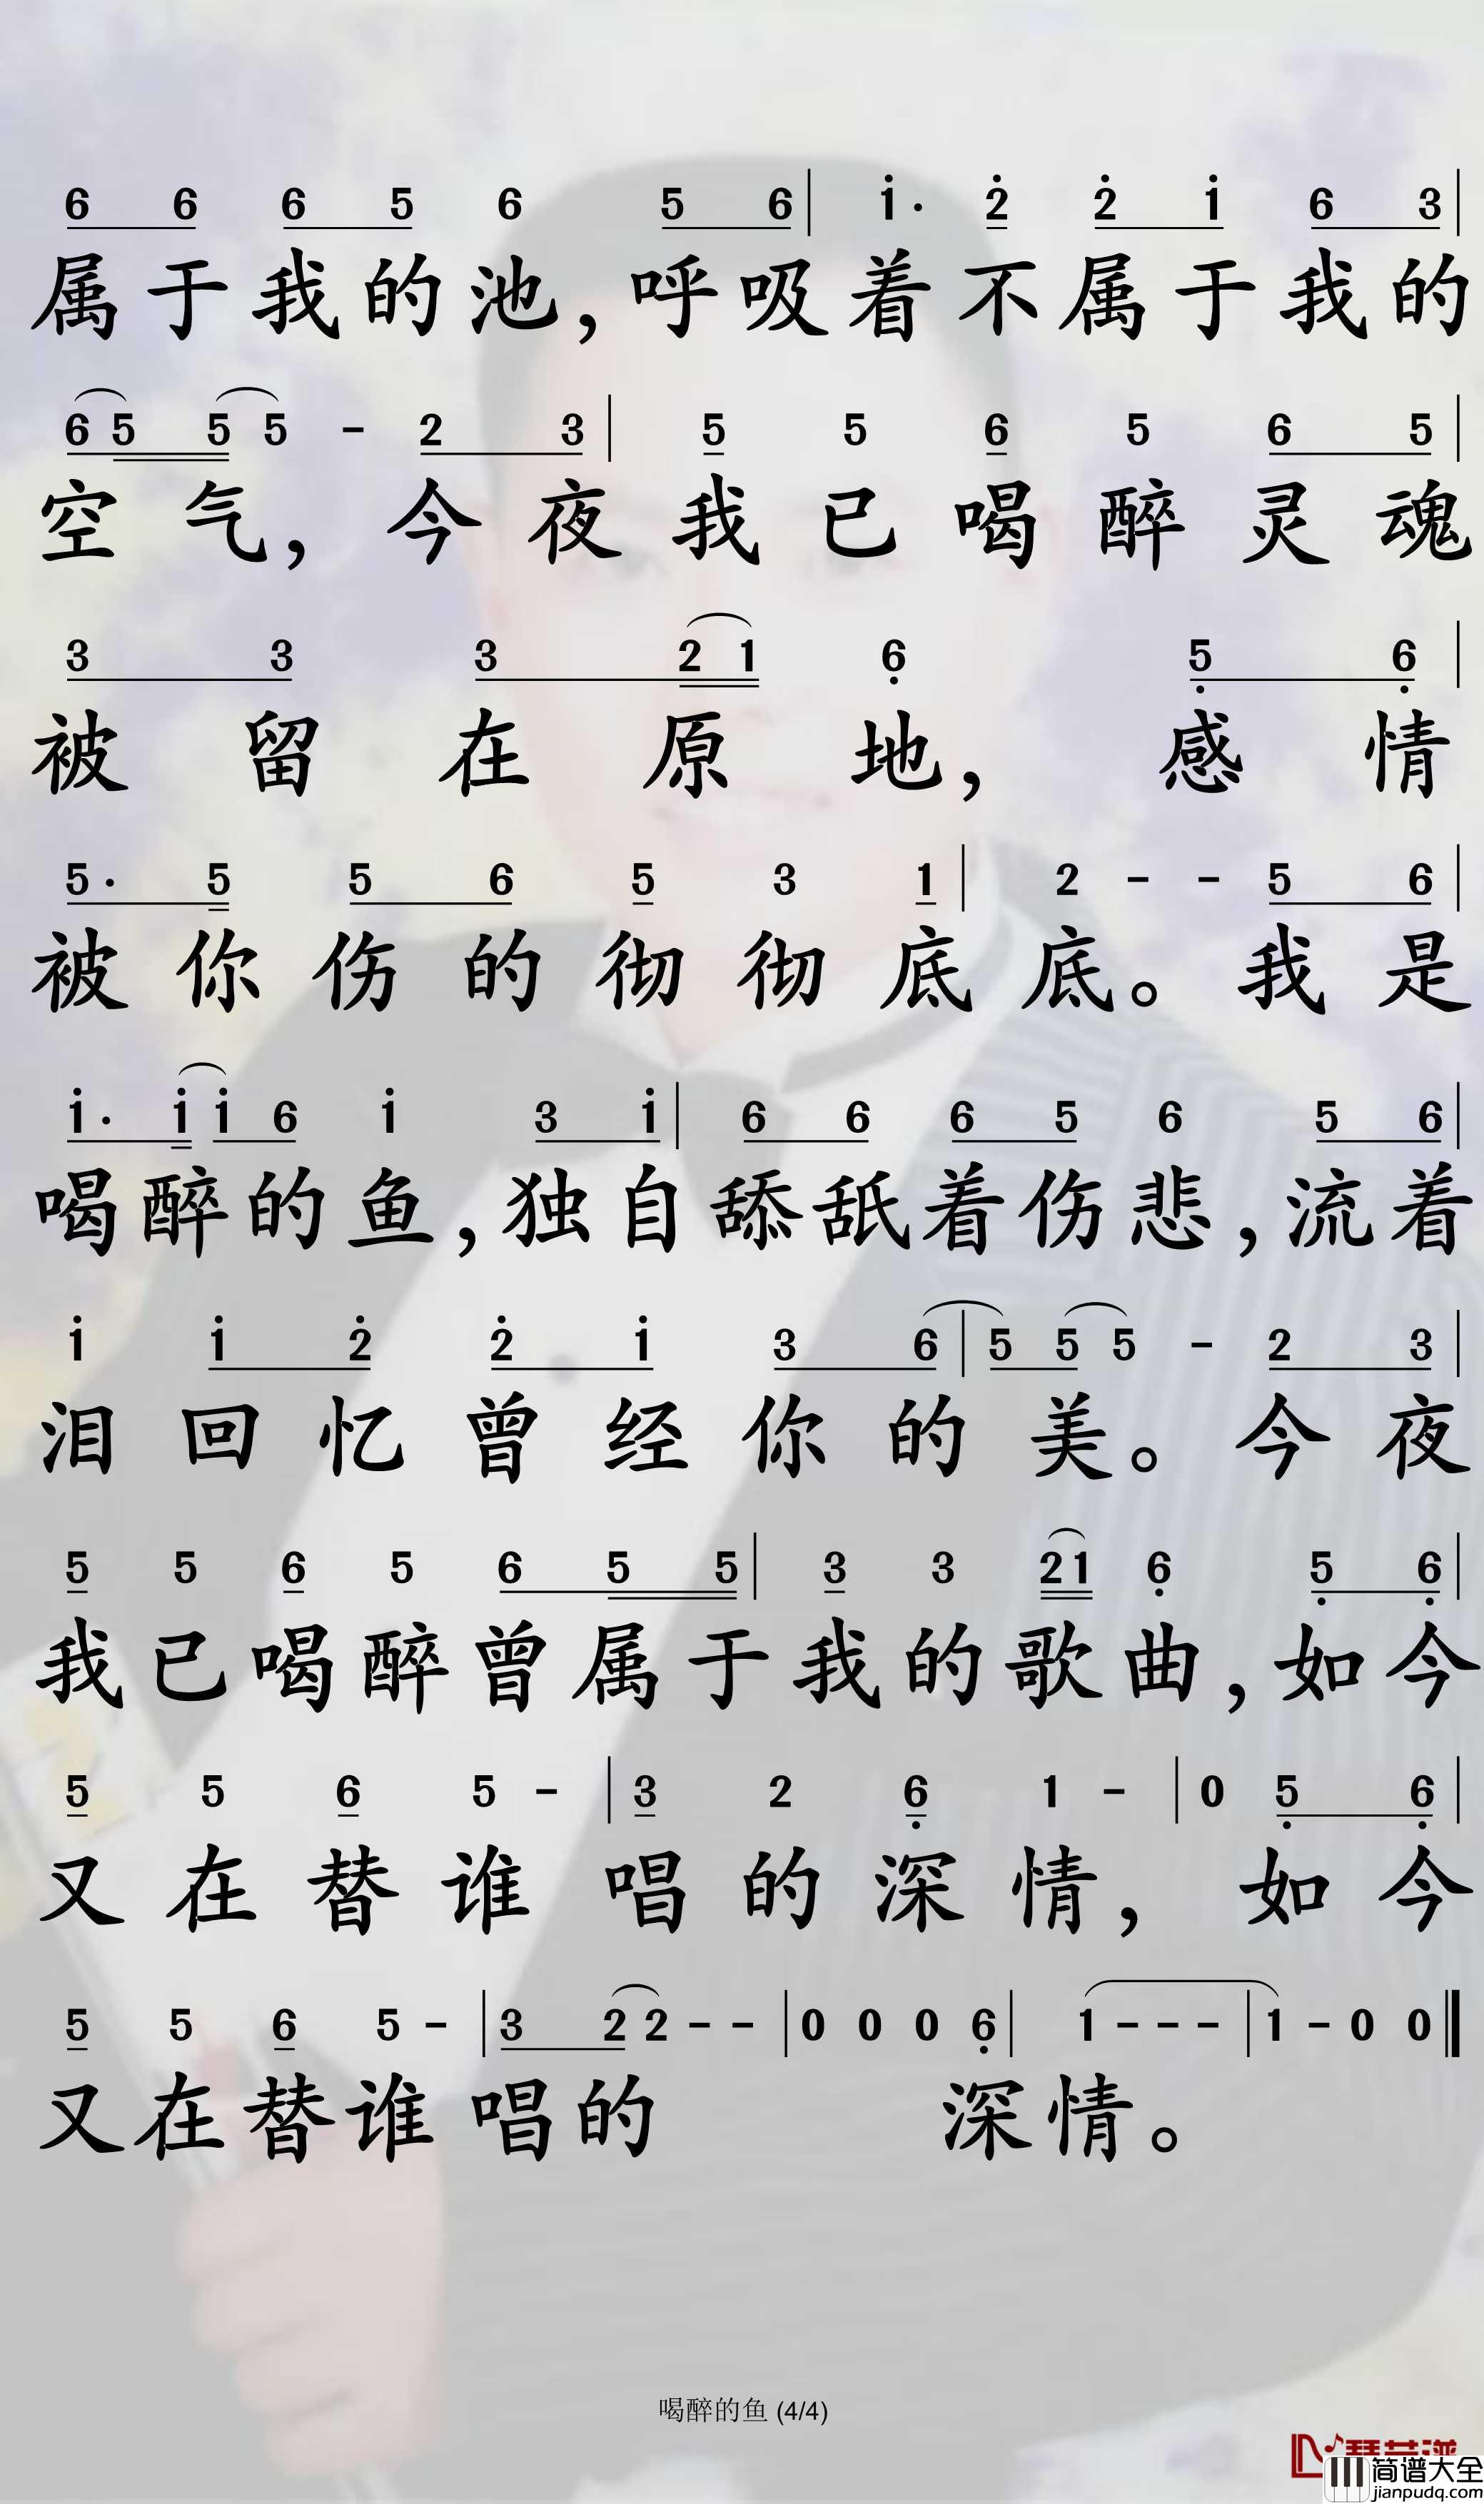 6 6 6 5 6 5 6 | i· 2̇ 2̇ i 6 3 |
属于我的池，呼吸着不属于我的
6 5 5 5 - 2 3 | 5 5 6 5 6 5 |
空气，今夜我已喝醉灵魂
3 3 3 2 1 6̣ 5̣ 6̣ |
被留在原地，感情
5· 5 5 6 5 3 1 | 2 - - 5 6 |
被你伤的彻彻底底。我是
i· i i 6 i 3 i | 6 6 6 5 6 5 6 |
喝醉的鱼，独自舔舐着伤悲，流着
i i 2̇ 2̇ i 3 6 | 5 5 5 - 2 3 |
泪回忆曾经你的美。今夜
5 5 6 5 6 5 5 | 3 3 2 1 6̣ 5̣ 6̣ |
我已喝醉曾属于我的歌曲，如今
5 5 6 5 - | 3 2 6̣ 1 - | 0 5̣ 6̣ |
又在替谁唱的深情，如今
5 5 6 5 - | 3 2 2 - - | 0 0 0 6̣ | 1 - - - | 1 - 0 0 ‖
又在替谁唱的深情。
喝醉的鱼 (4/4)
简谱大全
jianpudq.com